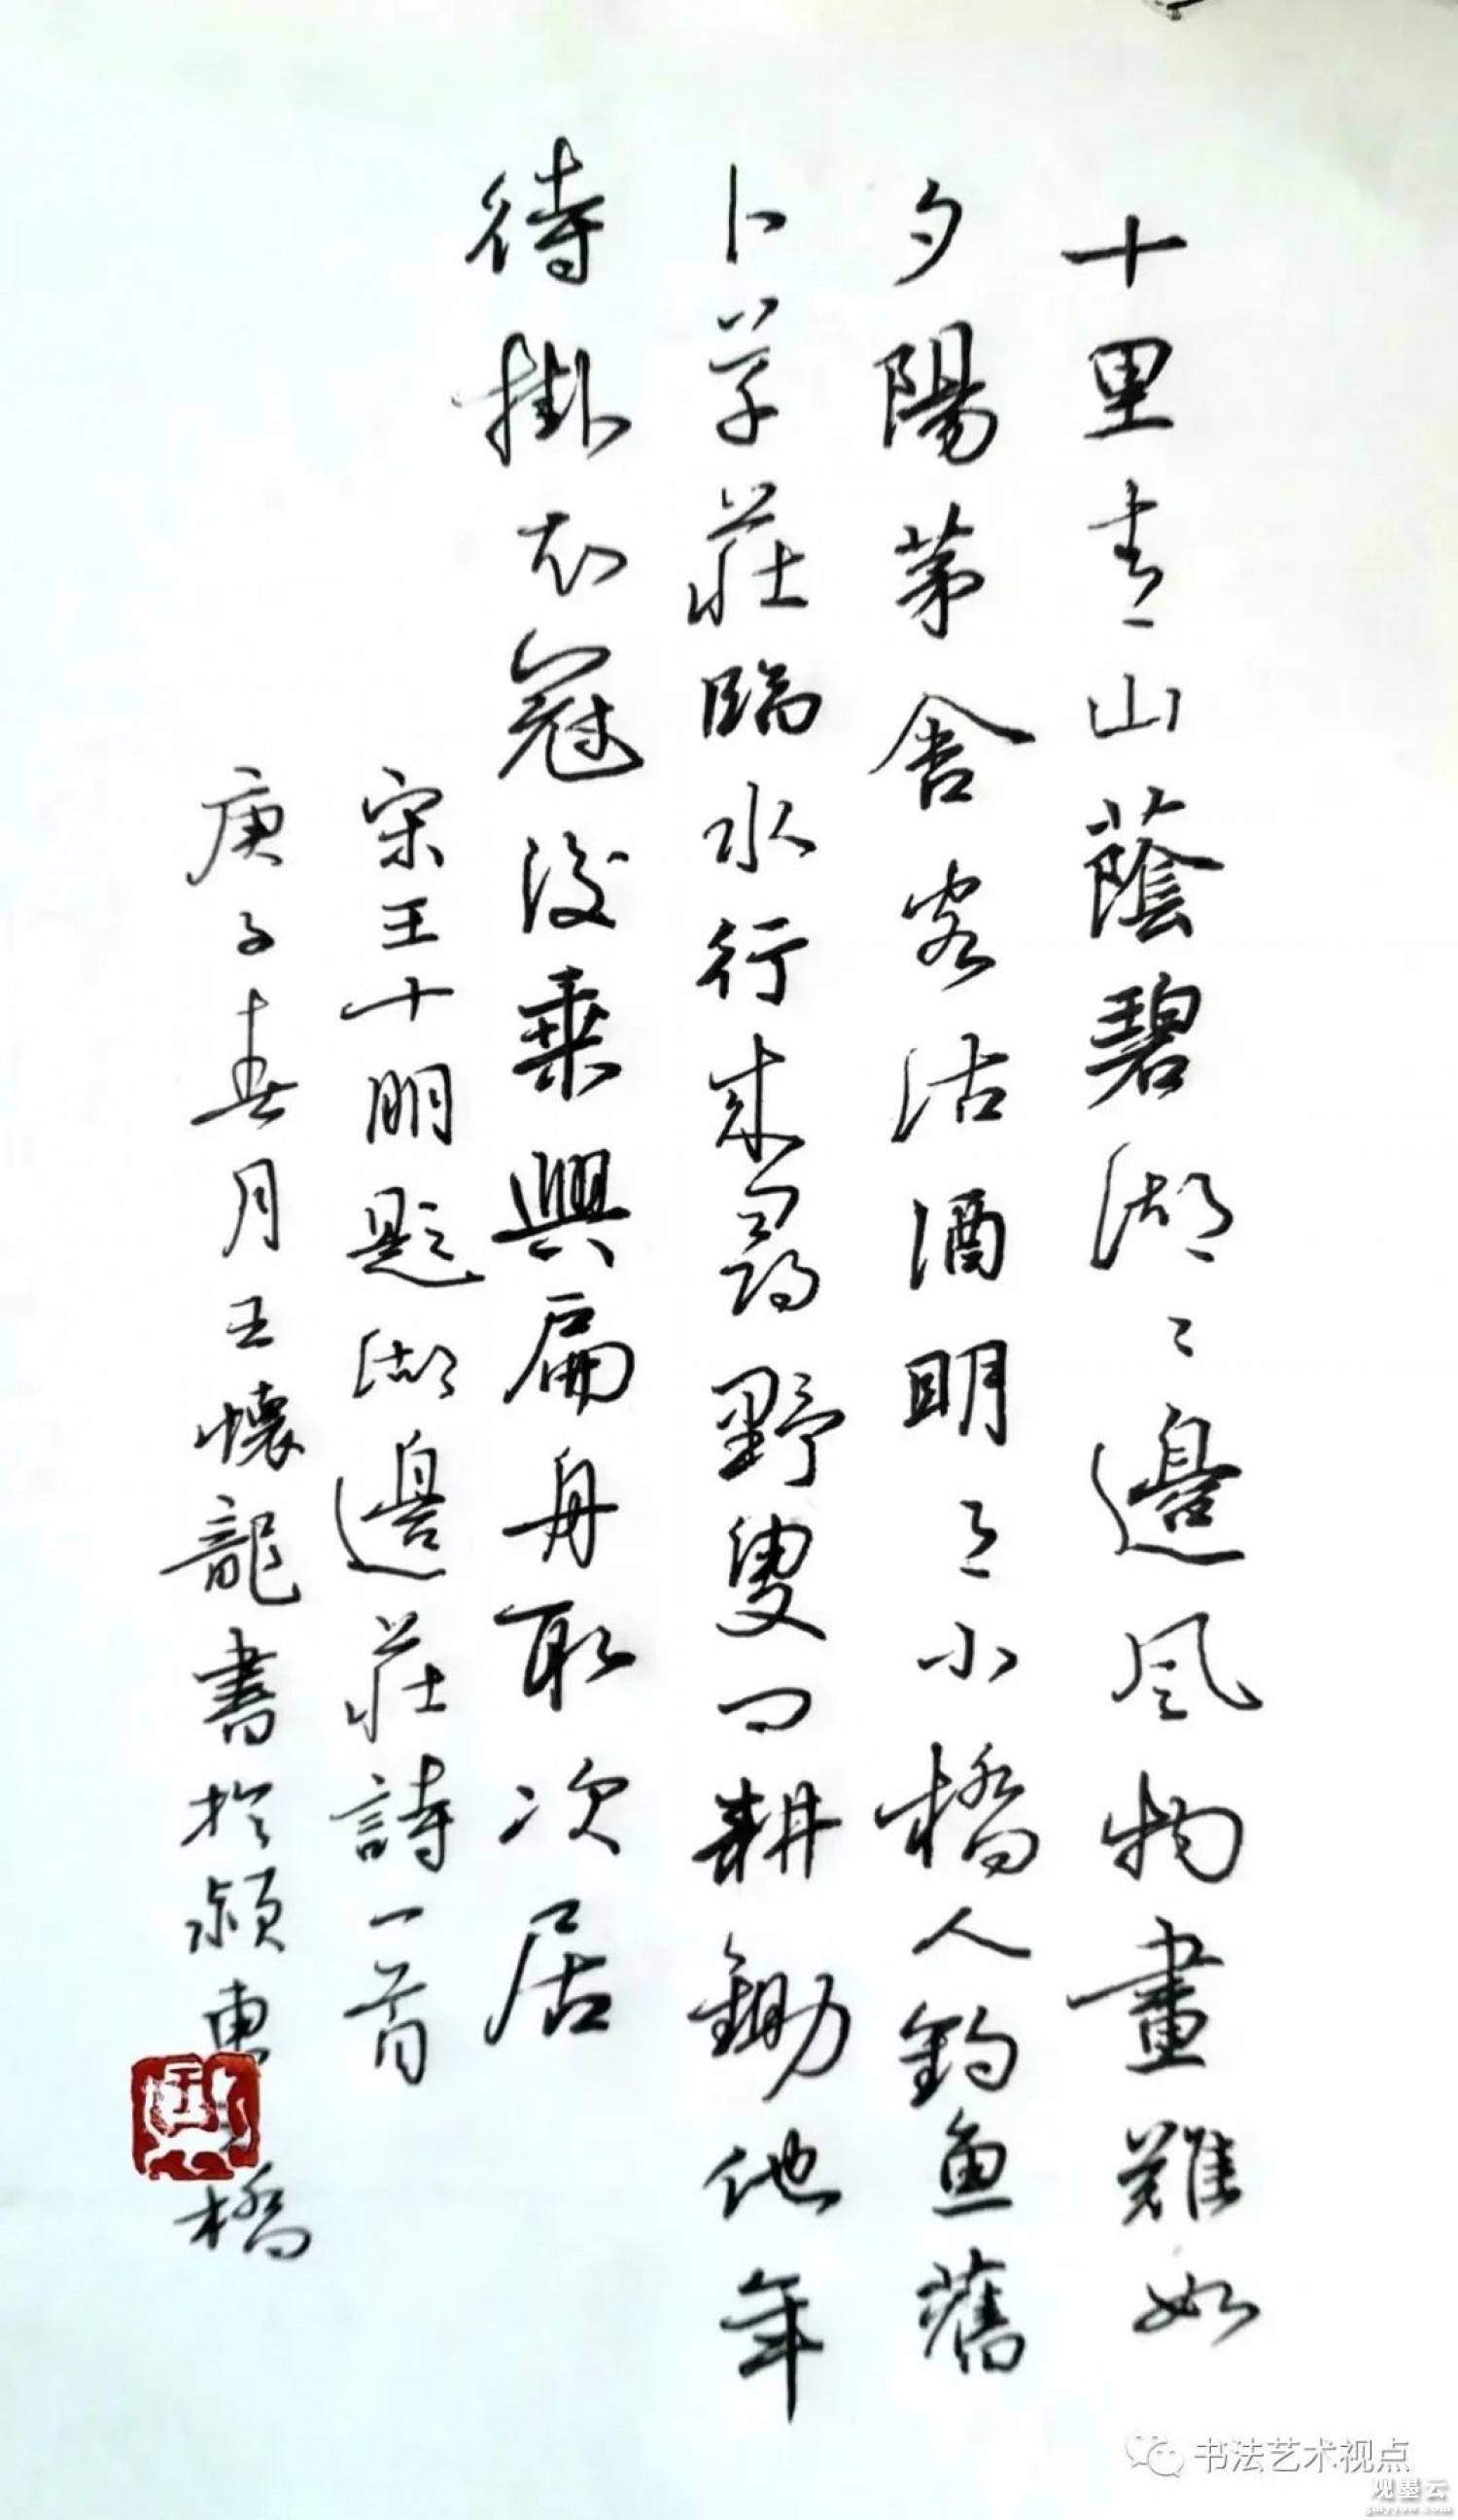 十里青山蔭碧湖〻邊風物畫難如
夕陽茅舍客沽酒明〻小橋人釣魚舊
卜草莊臨水行來尋野叟問耕鋤他年
待掛衣冠後乘興扁舟取次居
宋王十朋題湖邊莊詩一首
庚子春月王懷龍書於潁東橋
书法艺术视点
观墨云